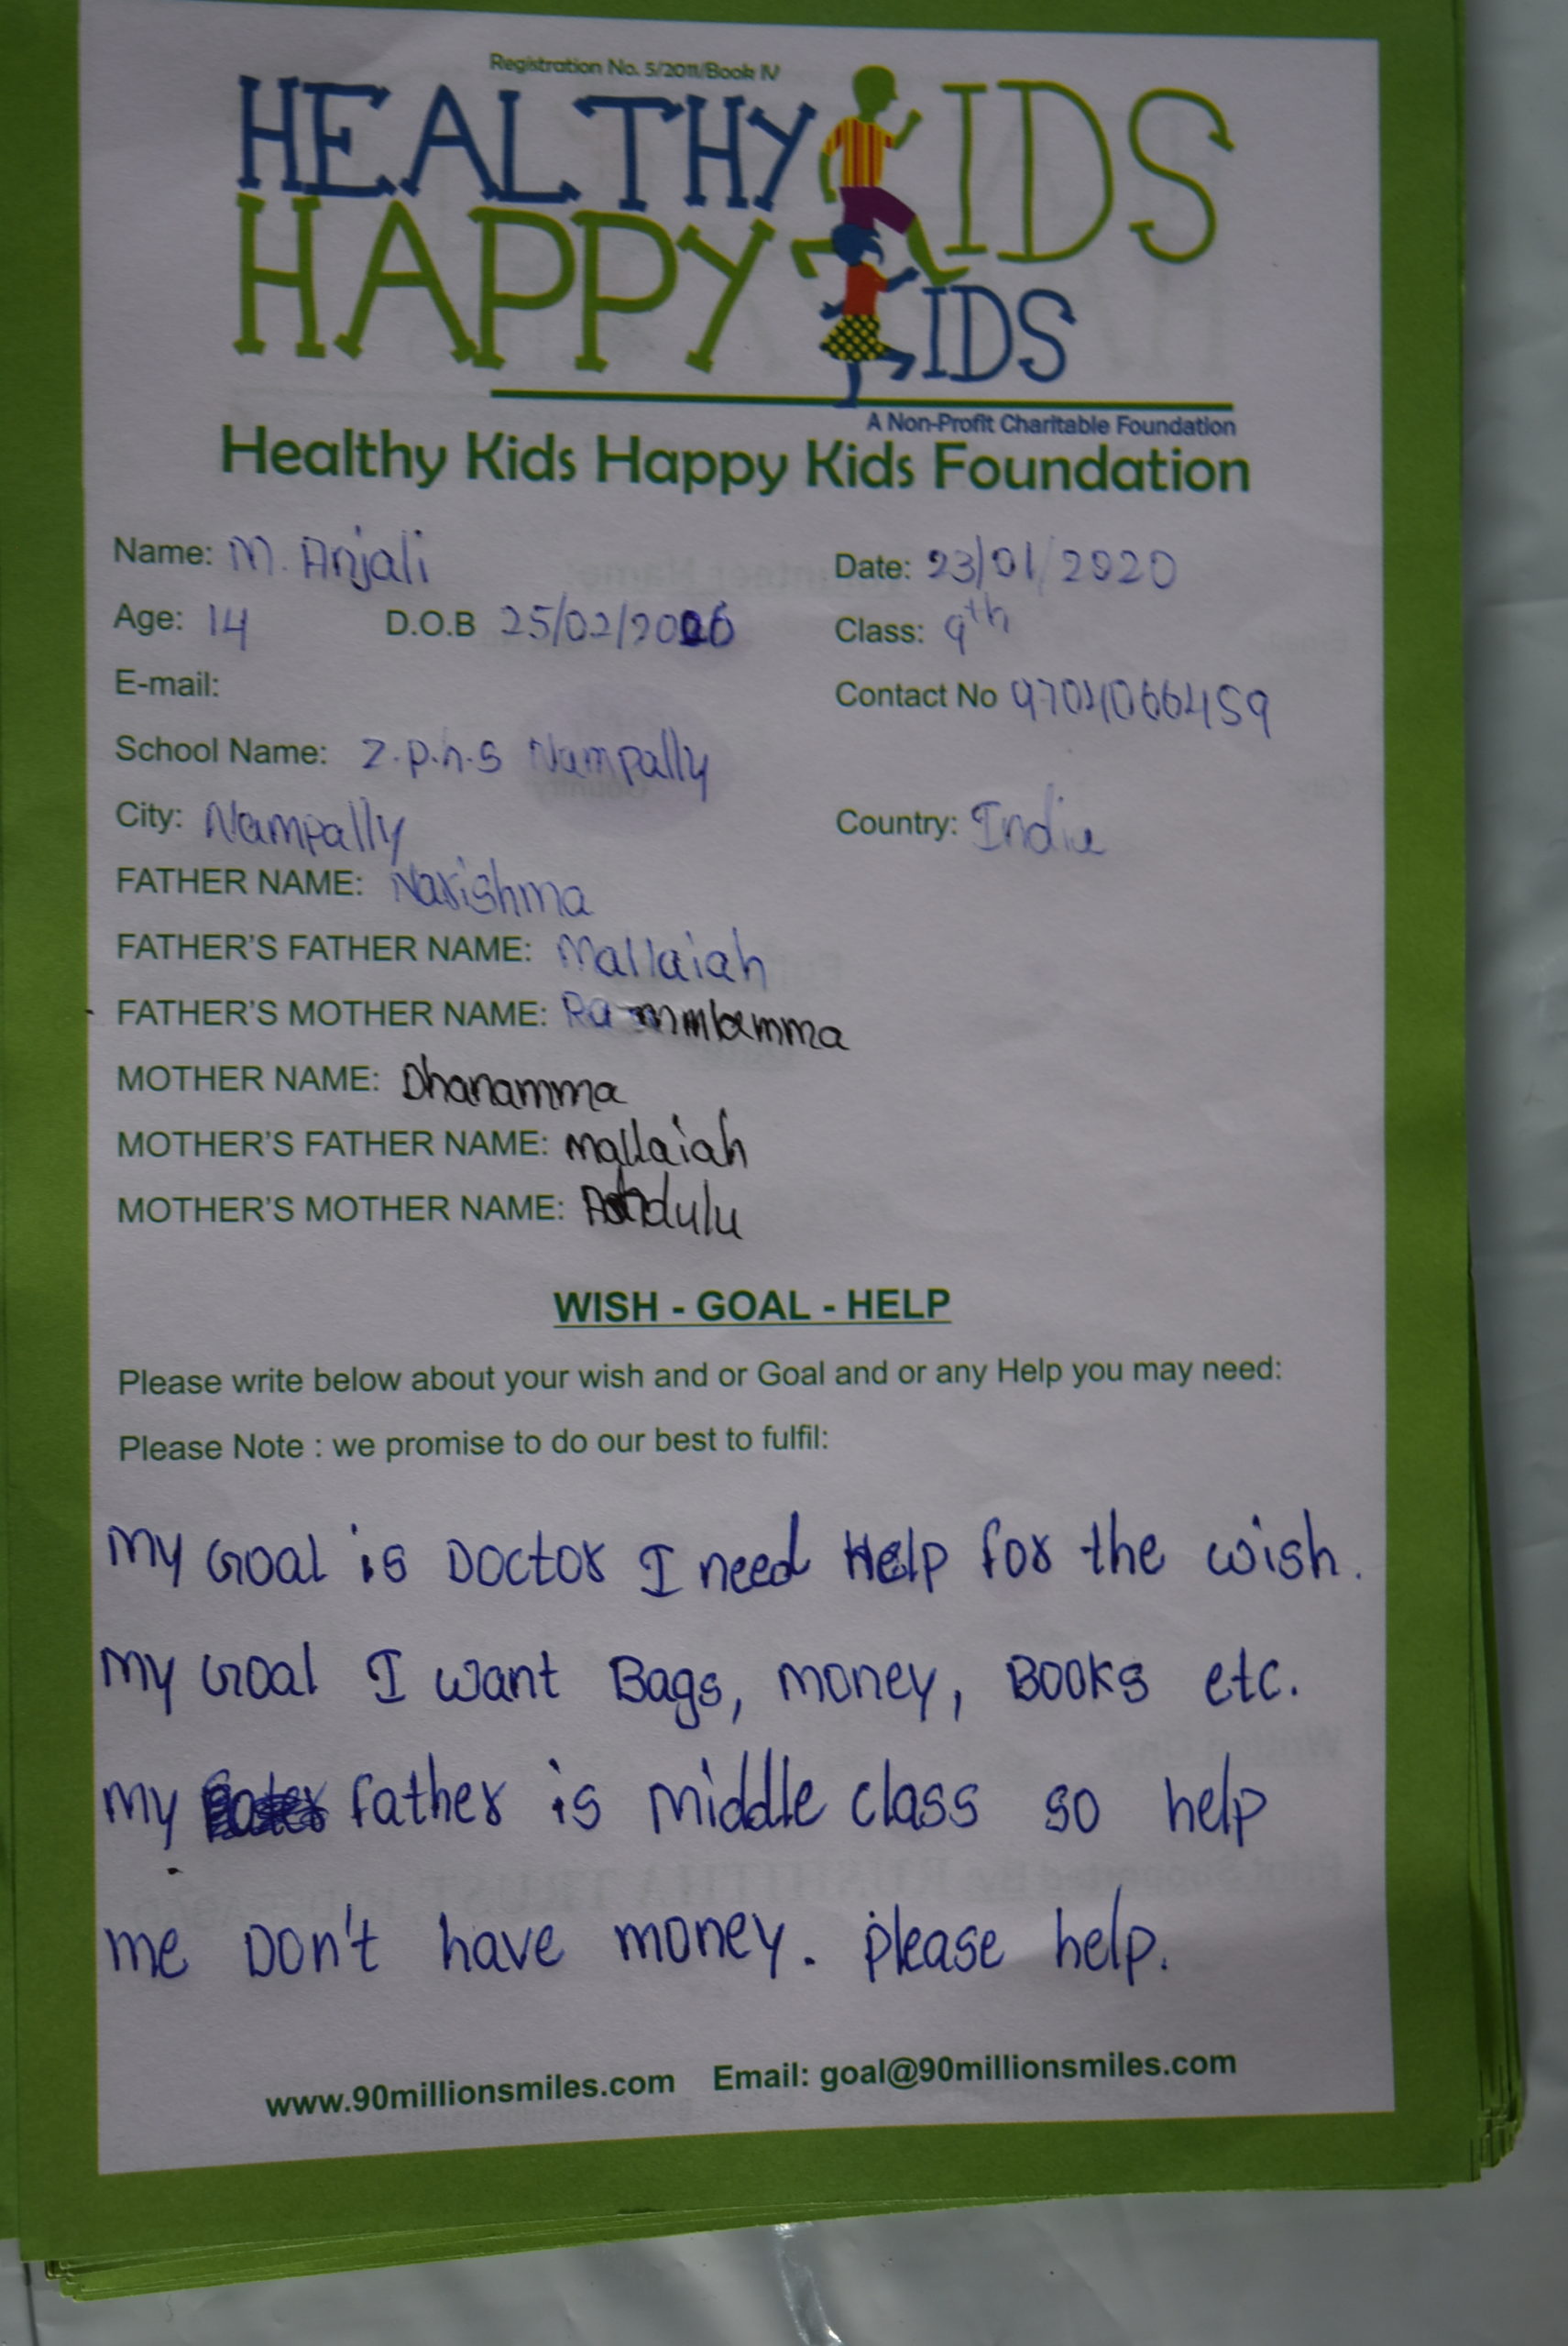 Registration No. 5/2011/Book IV
HEALTHY KIDS
HAPPY KIDS
A Non-Profit Charitable Foundation
Healthy Kids Happy Kids Foundation
Name: M. Anjali Date: 23/01/2020
Age: 14 D.O.B 25/02/2006 Class: 9th
E-mail: Contact No 9704066459
School Name: Z.p.h.s Nampally
City: Nampally Country: India
FATHER NAME: Narishma
FATHER'S FATHER NAME: Mallaiah
FATHER'S MOTHER NAME:
MOTHER NAME: Dhanamma
MOTHER'S FATHER NAME: Mallaiah
MOTHER'S MOTHER NAME:
WISH - GOAL - HELP
Please write below about your wish and or Goal and or any Help you may need:
Please Note : we promise to do our best to fulfil:
My Goal is Doctor I need Help for the wish.
My Goal I want Bags, money, Books etc.
My father is middle class so help
me Don't have money. please help.
www.90millionsmiles.com Email: goal@90millionsmiles.com